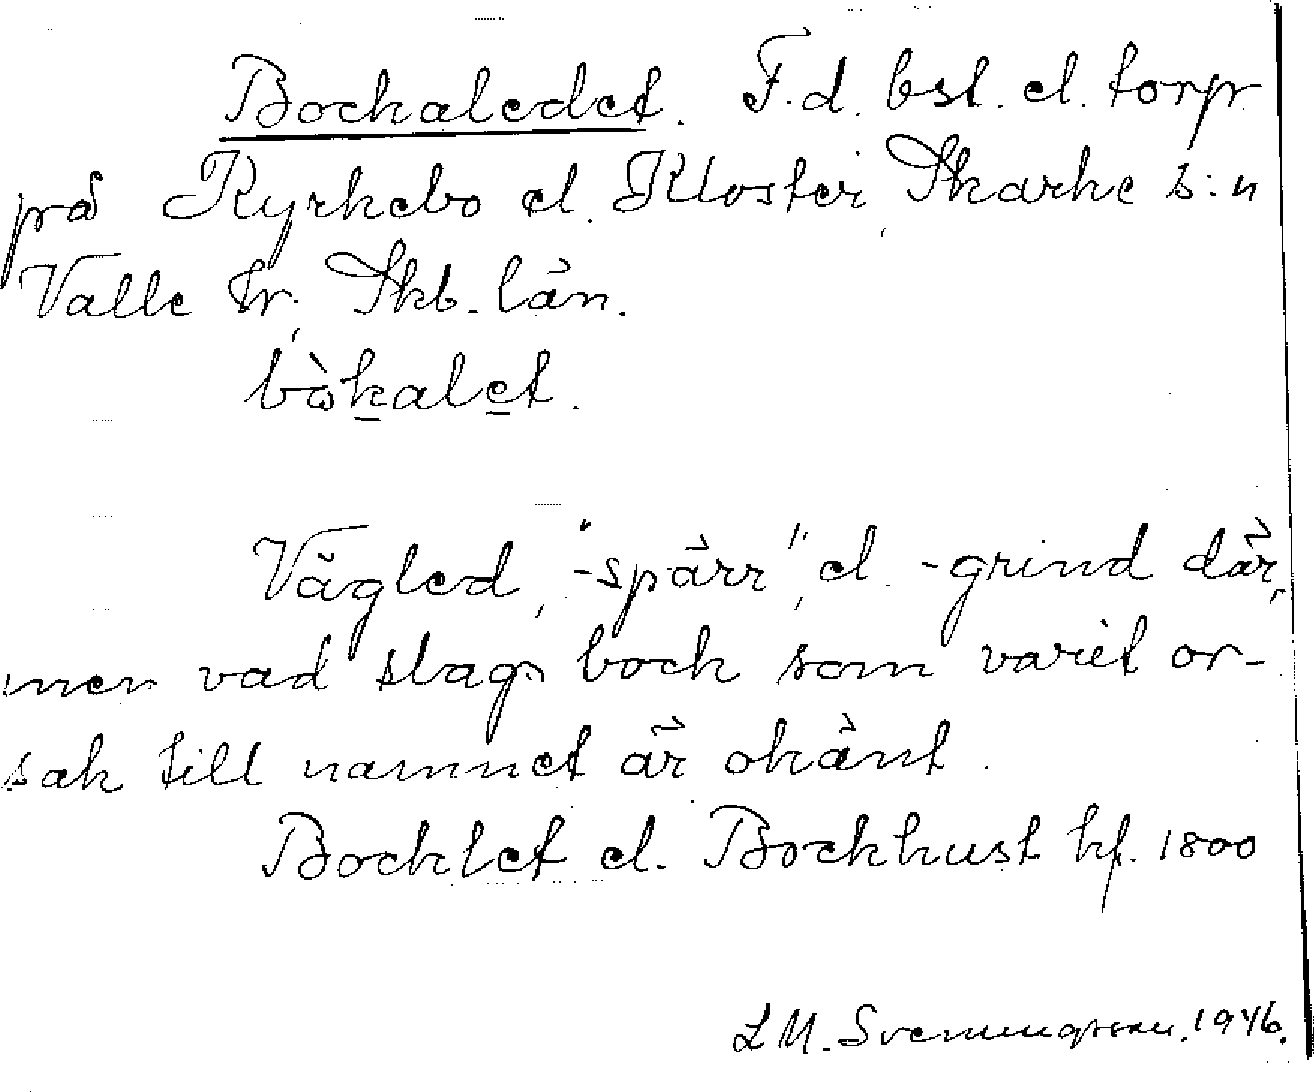 Bockaledet. F.d. bst. el. torp
på Kyrkebo el. Kloster, Skarke s:n
Valle hr, Skb. län.
bòkalet.
Vägled, "-spärr", el. -grind där,
men vad slags bock som varit or-
sak till namnet är okänt.
Bocklet el. Bockhust hf. 1800
L M. Svenungsson. 1946.